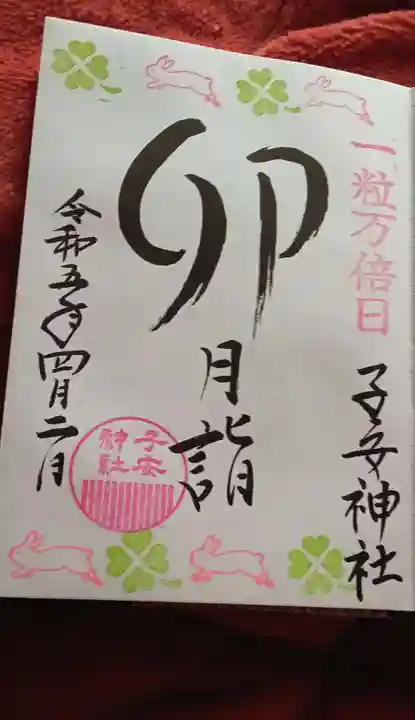 一粒万倍日
子安神社
卯
月詣
令和五年四月二日
子安
神社